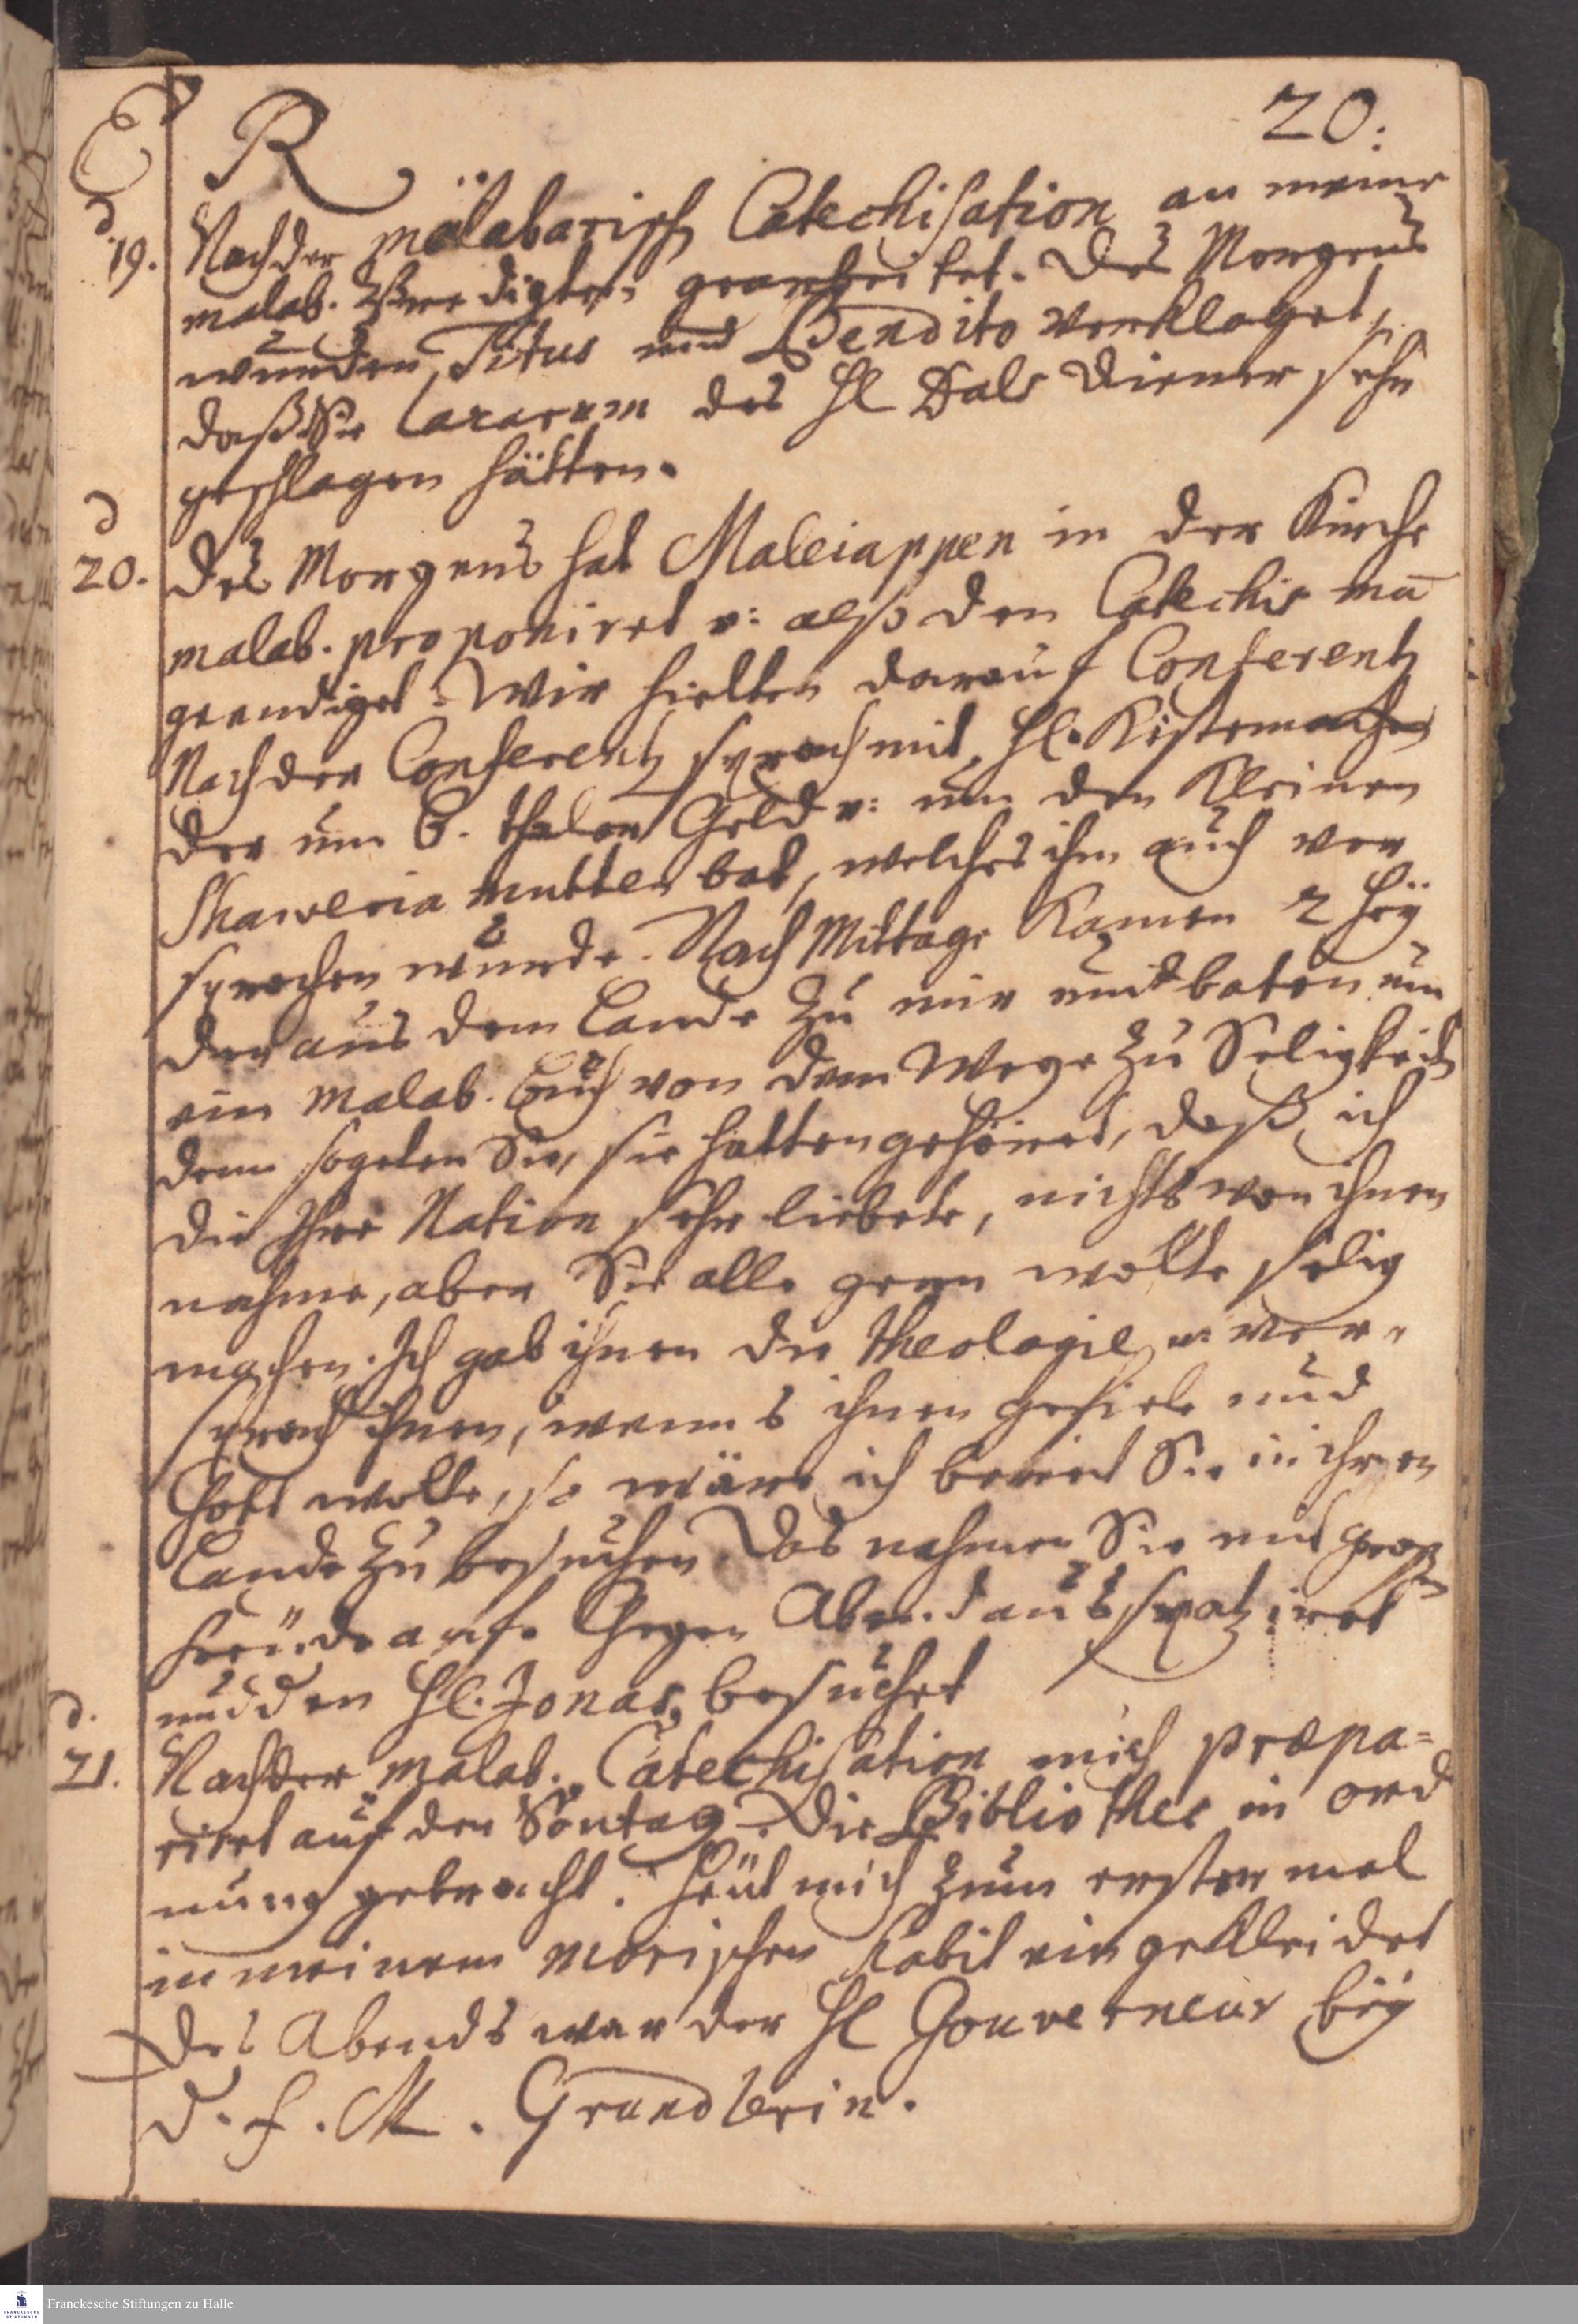 20.
R
d
19. Nach der malabarisch Catechisation an meine
malab. Predigten gearbeitet. Des Morgens
wurden Titus und Bendito verklaget,
daß Sie Lazarum des Hl Dals Diener sehr
geschlagen hätten.
d
20. Des Morgens hat Maleiappen in der Kirche
malab. proponiret u: also den Catechismū
geendiget. Wir hielten darauf Conferentz
Nach der Conferentz sprach mit Hl. Kistemacher
der um 6. thaler Geld u: um den Kleinen
mutter bat, welches ihm auch ver
sprochen wurde. Nach Mittage Kamen 2 Hey
den aus dem Lande zu mir und baten um
ein malab. Buch von dem Wege zu Seligkeit
denn sageten Sie, sie hatten gehöret, daß ich
die Ihre Nation sehr liebete, nichts von ihnen
nehme, aber Sie alle gern wolte selig
machen. Ich gab ihnen die Theologie u: ver-
sprach ihnen, wenns ihnen gefiele und
Gott wolte, so wäre ich bereit Sie in ihren
Lande zu besuchen. Das nahmen Sie mit groß
freude auf. Gegen Abend ausspatziret
und den Hl. Jonas besuchet
d.
21. Nach der malab. Catechisation mich præpa=
riret auf den Sontag. Die Bibliothec in ord
nung gebracht. Heut mich zum ersten mal
in meinem morischen Habit eingekleidet
Des Abends war der Hl Gouverneur bey
d. f. M. Grundlerin.
Franckesche Stiftungen zu Halle
FRANCKESCHE
STIFTUNGEN